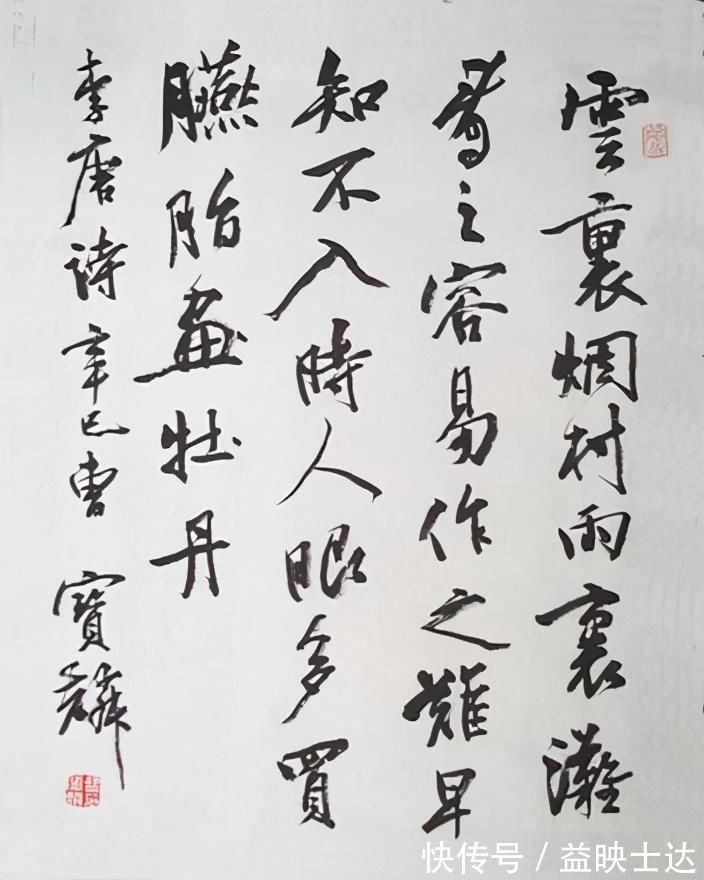 雲裏烟村雨裏灘
看之容易作之難早
知不入時人眼多買
臙脂畫牡丹
李唐詩 辛巳曹寶麟
快传号 / 益映士达